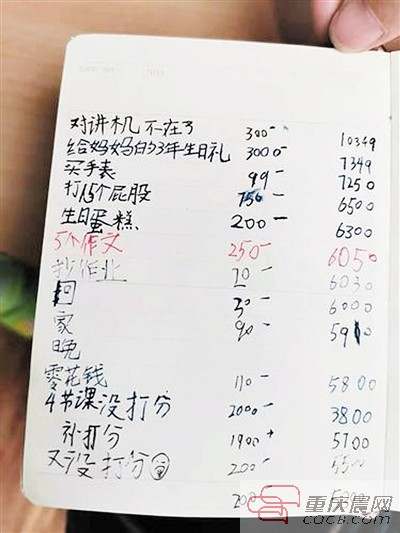 对讲机 不在了 300- 10349
给妈妈的3年生日礼 3000- 7349
买手表 99- 7250
打15个屁股 750- 6500
生日蛋糕 200- 6300
5个作文 250- 6050
抄作业 20- 6030
回 30- 6000
家 90- 5910
晚
零花钱 110- 5800
4节课没打分 2000- 3800
补打分 1900+ 5700
又没打分 200- 5500
200-
重庆晨网
CQCB.com